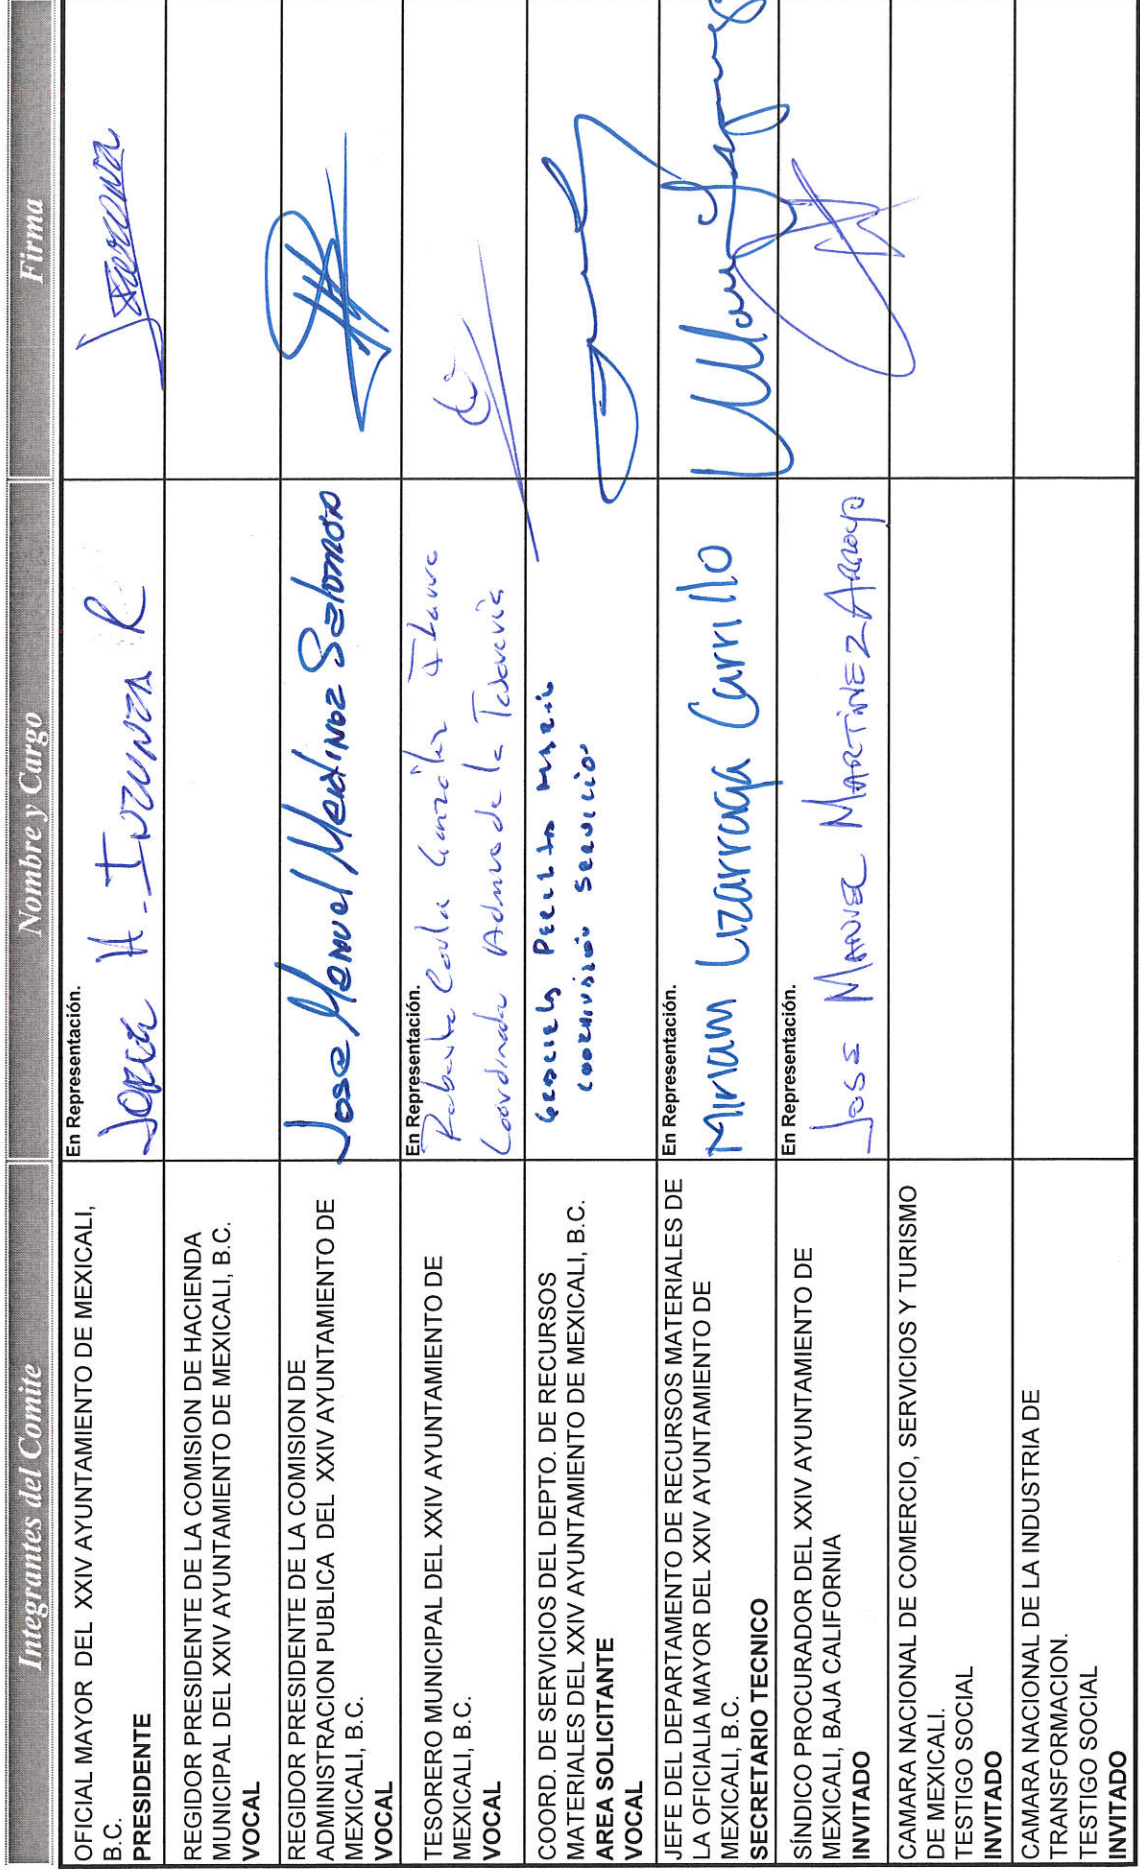 Integrantes del Comite
Nombre y Cargo
Firma
OFICIAL MAYOR DEL XXIV AYUNTAMIENTO DE MEXICALI,
B.C.
PRESIDENTE
En Representación.
Jorge H. Irunza R
REGIDOR PRESIDENTE DE LA COMISION DE HACIENDA
MUNICIPAL DEL XXIV AYUNTAMIENTO DE MEXICALI, B.C.
VOCAL
REGIDOR PRESIDENTE DE LA COMISION DE
ADMINISTRACION PUBLICA DEL XXIV AYUNTAMIENTO DE
MEXICALI, B.C.
VOCAL
Jose Manuel Martinez Salomon
TESORERO MUNICIPAL DEL XXIV AYUNTAMIENTO DE
MEXICALI, B.C.
VOCAL
En Representación.
Coordinada Admva de la Tesorería
COORD. DE SERVICIOS DEL DEPTO. DE RECURSOS
MATERIALES DEL XXIV AYUNTAMIENTO DE MEXICALI, B.C.
AREA SOLICITANTE
VOCAL
JEFE DEL DEPARTAMENTO DE RECURSOS MATERIALES DE
LA OFICIALIA MAYOR DEL XXIV AYUNTAMIENTO DE
MEXICALI, B.C.
SECRETARIO TECNICO
En Representación.
Miriam Lizarraga Carrillo
SÍNDICO PROCURADOR DEL XXIV AYUNTAMIENTO DE
MEXICALI, BAJA CALIFORNIA
INVITADO
En Representación.
Jose Manuel Martinez Arroyo
CAMARA NACIONAL DE COMERCIO, SERVICIOS Y TURISMO
DE MEXICALI.
TESTIGO SOCIAL
INVITADO
CAMARA NACIONAL DE LA INDUSTRIA DE
TRANSFORMACION.
TESTIGO SOCIAL
INVITADO